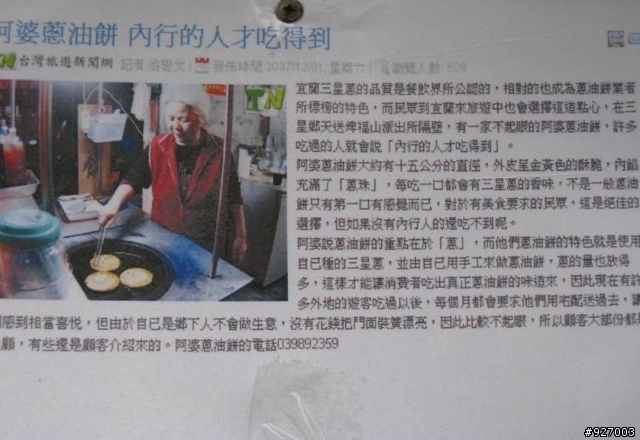 阿婆蔥油餅 內行的人才吃得到
TN 台灣旅遊新聞網 記者 發佈時間 2007/12/01, 星期六 | 瀏覽人數: 509
TN
宜蘭三星蔥的品質是餐飲界所公認的，相對的也成為蔥油餅業者
所標榜的特色，而民眾到宜蘭來旅遊中也會選擇這道點心，在三
星鄉天送埤福山派出所隔壁，有一家不起眼的阿婆蔥油餅，許多
吃過的人就會說「內行的人才吃得到」。
阿婆蔥油餅大約有十五公分的直徑，外皮呈金黃色的酥脆，內餡
充滿了「蔥珠」，每吃一口都會有三星蔥的香味，不是一般蔥油
餅只有第一口有感覺而已，對於有美食要求的民眾，這是絕佳的
選擇，但如果沒有內行人的還吃不到呢。
阿婆說蔥油餅的重點在於「蔥」，而他們蔥油餅的特色就是使用
自己種的三星蔥，並由自己用手工來做蔥油餅，蔥的量也放得
多，這樣才能讓消費者吃出真正蔥油餅的味道來，因此現在有許
多外地的遊客吃過以後，每個月都會要求他們用宅配送過去，讓
感到相當喜悅，但由於自己是鄉下人不會做生意，沒有花錢把門面裝簧漂亮，因此比較不起眼，所以顧客大部份都是
顧，有些還是顧客介紹來的。阿婆蔥油餅的電話039892359
#927003